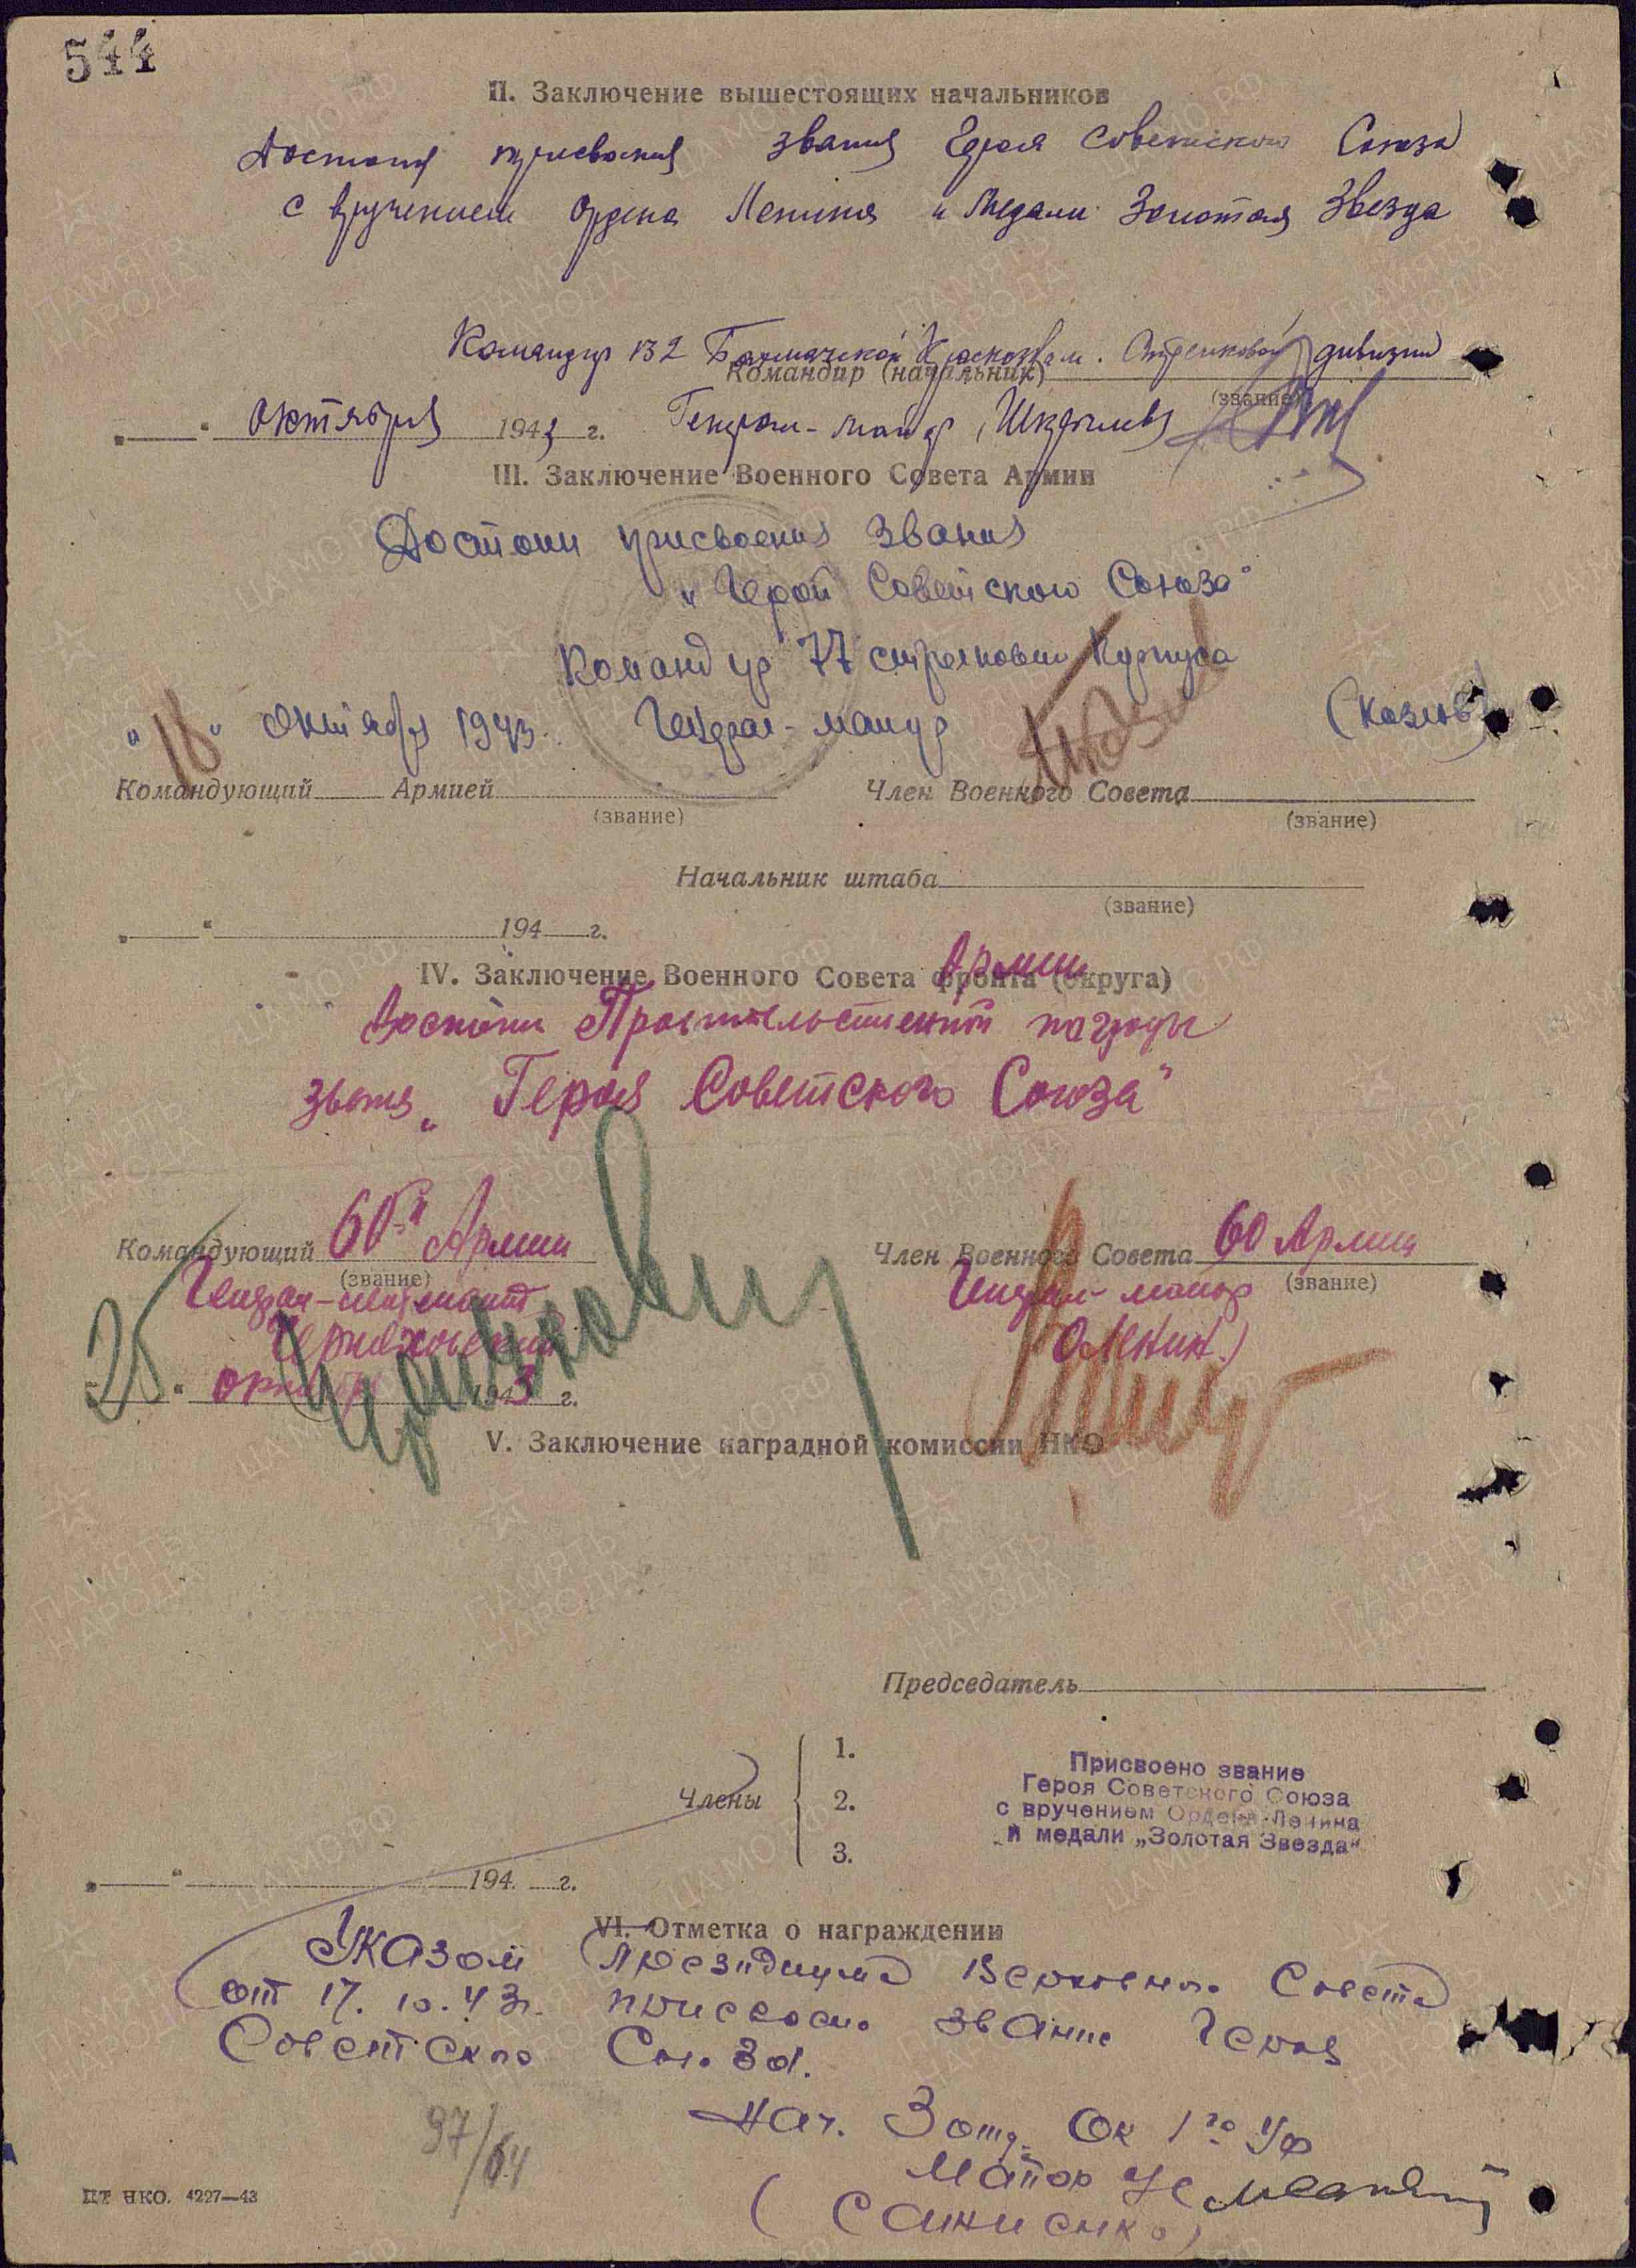 544
II. Заключение вышестоящих начальников
Достоин присвоения звания Героя Советского Союза
с вручением Ордена Ленина и Медали Золотая Звезда
Командир 132 Бахмачской Краснознам. Стрелковой дивизии
Командир (начальник)
(звание)
„ “ октября 1943 г. Генерал-майор (Шкрылев)
III. Заключение Военного Совета Армии
Достоин присвоения звания
„Герой Советского Союза“
Командир 77 стрелкового Корпуса
„18“ октября 1943. Генерал-майор (Козлов)
Командующий Армией Член Военного Совета
(звание) (звание)
Начальник штаба
(звание)
„ “ 194 г.
IV. Заключение Военного Совета фронта (округа)
Армии
Достоин Правительственной награды
звания „Героя Советского Союза“
Командующий 60й Армии Член Военного Совета 60 Армии
(звание) (звание)
Генерал-лейтенант Генерал-майор
Черняховский Оленин)
25 “ октября 1943 г.
V. Заключение наградной комиссии НКО
Председатель
Члены
1.
2.
3.
Присвоено звание
Героя Советского Союза
с вручением Ордена Ленина
и медали „Золотая Звезда“
„ “ 194 г.
VI. Отметка о награждении
Указом Президиума Верховного Совета
от 17.10.43г. присвоено звание Героя
Советского Союза.
Нач. 3 отд. ОК 1го УФ
Майор
97/64
ЦТ НКО. 4227—43
ПАМЯТЬ НАРОДА
ЦАМО.РФ